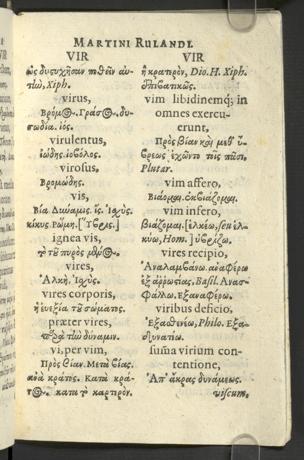 MARTINI RULANDI.
VIR
ὡς δυςτυχῆσαν πιθεῖν αυ-
τίω, Xiph.
virus,
Βρόμος. Γράσος. δυ-
σωδία. ἰός.
virulentus,
ἰώδης. ἰοβόλος.
virosus,
Βρομώδης.
vis,
Βία. Δύναμις. ἴς. Ἰσχύς.
κίκυς. Ρώμη. [Ὕβρις.]
ignea vis,
τὸ τοῦ πυρὸς
vires,
Ἀλκή. Ἰσχύς.
vires corporis,
ἡ εὐεξία τοῦ σώματος.
præter vires,
παρὰ τὴν δύναμιν.
vi, per vim,
Πρὸς βίαν. Μετὰ βίας.
ἀνὰ κράτος. Κατὰ κρά-
τος. κατὰ τὸ καρτερόν.
VIR
ἢ κρατερὸν, Dio. H. Xiph.
Ἐπιβατικῶς.
vim libidinemq; in
omnes exercu-
erunt,
Πρὸς βίαν καὶ μεθ' ὕ-
βρεως ἐχῶντο τοῖς πᾶσι,
Plutar.
vim affero,
Βιάομαι. ἐκβιάζομαι.
vim infero,
Βιάζομαι. [ἑλκέω, seu ἑλ-
κύω, Hom.] ὑβρίζω.
vires recipio,
Ἀναλαμβάνω. ἀναφέρω
ἐξ ἀῤῥωστίας, Basil. Ἀνασ-
φάλλω. Ἐξαναφέρω.
viribus deficio,
Ἐξασθενέω, Philo. Ἐξα-
δυνατέω.
sum̃a virium con-
tentione,
Ἀπ' ἄκρας δυνάμεως.
viscum,